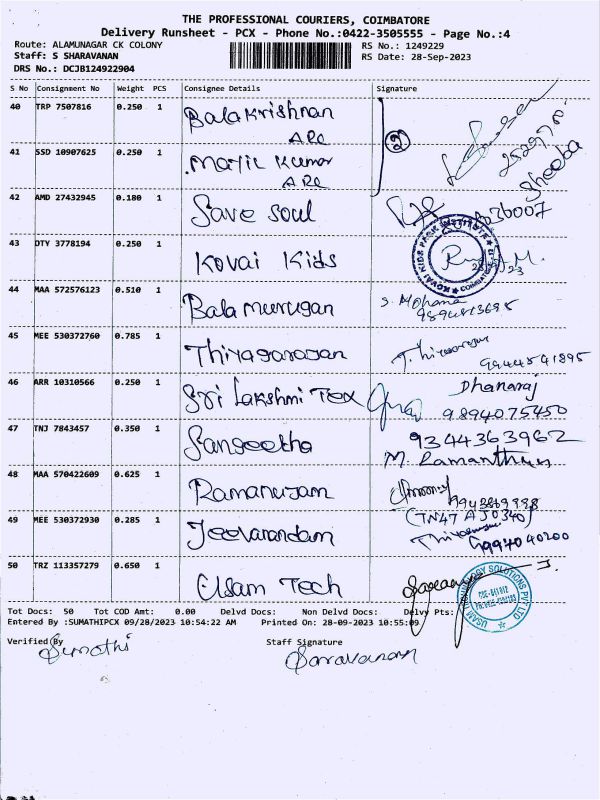 THE PROFESSIONAL COURIERS, COIMBATORE
Delivery Runsheet - PCX - Phone No.:0422-3505555 - Page No.:4
Route: ALAMUNAGAR CK COLONY RS No.: 1249229
Staff: S SHARAVANAN RS Date: 28-Sep-2023
DRS No.: DCJB124922904
S No Consignment No Weight PCS Consignee Details Signature
40 TRP 7507816 0.250 1 Balakrishnan
ARC
2
41 SSD 10907625 0.250 1
Kumar
ARC
Sheeba
42 AMD 27432945 0.180 1 Save Soul
43 DTY 3778194 0.250 1 Kovai Kids
KOVAI KIDS PARK
44 MAA 572576123 0.510 1 Balamurugan S. Mohana
45 MEE 530372760 0.785 1 Thiyagarajan
99445 41895
46 ARR 10310566 0.250 1 Sri Lakshmi Tex Dhanaraj
9894075450
47 TNJ 7843457 0.350 1 Sangeetha 9344363962
M. Ramanthan
48 MAA 570422609 0.625 1 Ramanujam
49 MEE 530372930 0.285 1 Jeevanandam (TN47 AJ0340)
9994040200
50 TRZ 113357279 0.650 1 Elsam Tech
Tot Docs: 50 Tot COD Amt: 0.00 Delvd Docs: Non Delvd Docs: Delvy Pts:
Entered By :SUMATHIPCX 09/28/2023 10:54:22 AM Printed On: 28-09-2023 10:55:09
Verified By Staff Signature
Sumathi Saravanan